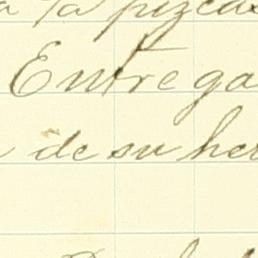 a la pizcas
Entrega
de su her